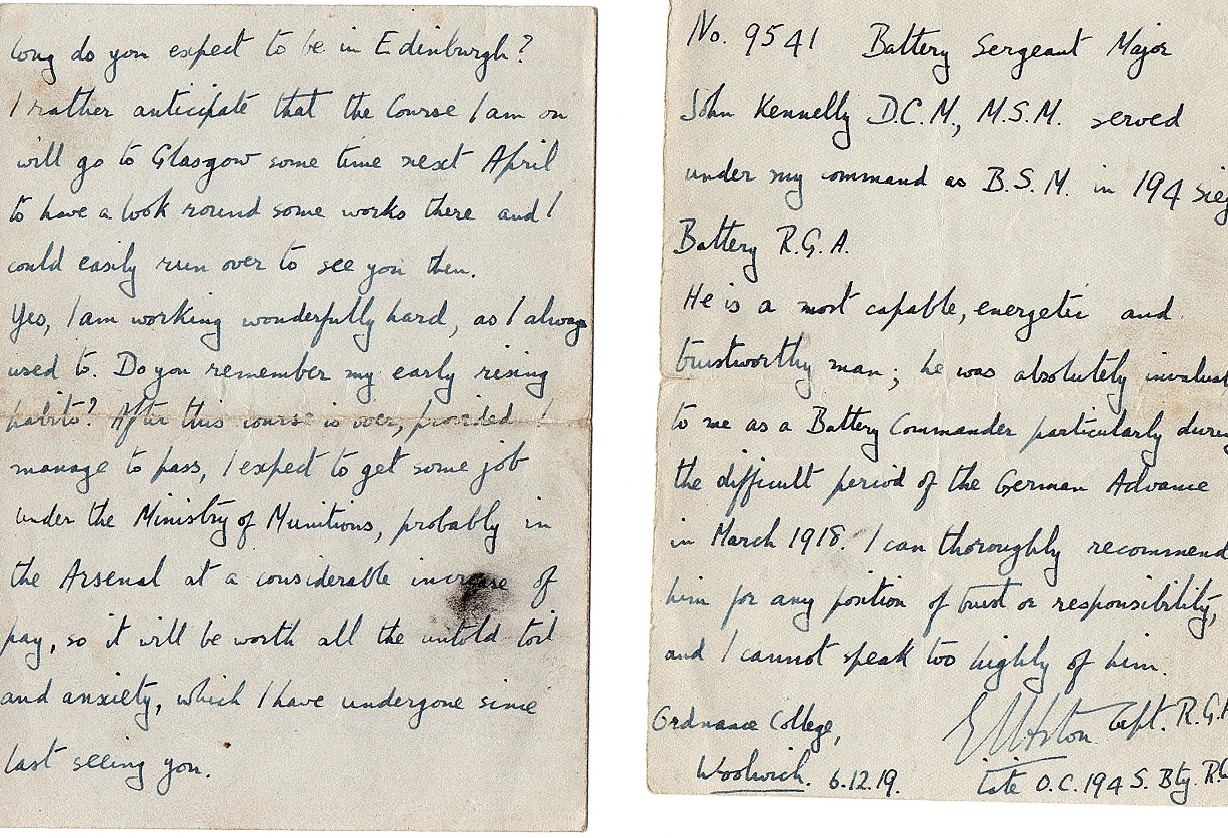 long do you expect to be in Edinburgh?
I rather anticipate that the Course I am on
will go to Glasgow some time next April
to have a look round some works there and I
could easily run over to see you then.
Yes, I am working wonderfully hard, as I always
used to. Do you remember my early rising
habits? After this course is over, provided I
manage to pass, I expect to get some job
under the Ministry of Munitions, probably in
the Arsenal at a considerable increase of
pay, so it will be worth all the untold toil
and anxiety, which I have undergone since
last seeing you.
No. 9541 Battery Sergeant Major
John Kennelly D.C.M., M.S.M. served
under my command as B.S.M. in 194 sieg
Battery R.G.A.
He is a most capable, energetic and
trustworthy man; he was absolutely invaluab
to me as a Battery Commander particularly durin
the difficult period of the German Advance
in March 1918. I can thoroughly recommend
him for any position of trust or responsibility,
and I cannot speak too highly of him.
Capt. R.G.A
Ordnance College,
Woolwich. 6.12.19.
late O.C. 194 S. Bty. RG